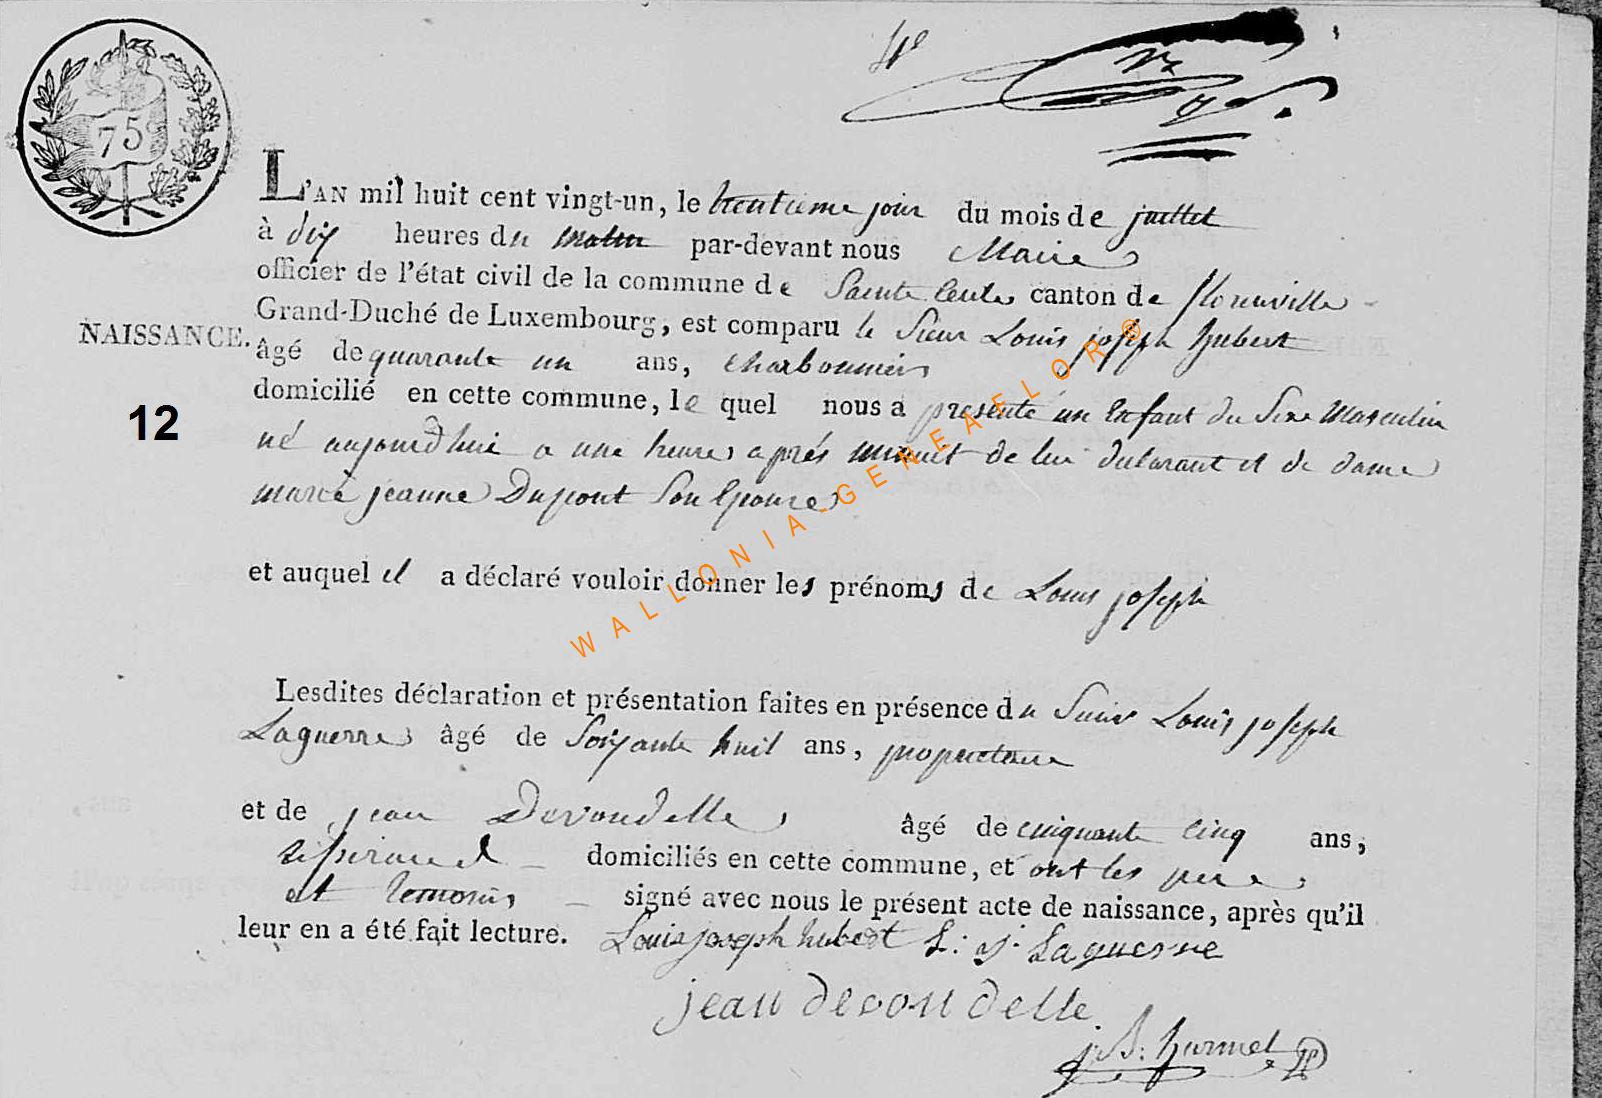 75
4e
L'AN mil huit cent vingt-un, le trentieme jour du mois de juillet
à dix heures du matin par-devant nous Maire
officier de l'état civil de la commune de Sainte Cecile canton de florenville
Grand-Duché de Luxembourg, est comparu le Sieur Louis joseph hubert
NAISSANCE.
âgé de quarante un ans, charbonnier
12
domicilié en cette commune, le quel nous a presenté un Enfant du Sexe Masculin
né aujourdhui a une heure après minuit de lui déclarant et de dame
marie jeanne Dupont Son Epouse
et auquel il a déclaré vouloir donner les prénoms de Louis joseph
WALLONIA-GENEAFLOR®
Lesdites déclaration et présentation faites en présence du Sieur Louis joseph
Laguerre âgé de Soixante huit ans, proprietaire
et de jean Devondelle âgé de cinquante cinq ans,
domiciliés en cette commune, et ont les pere
et temoins signé avec nous le présent acte de naissance, après qu'il
leur en a été fait lecture. Louis joseph hubert L: j: Laguerre
jean devondelle
j. B: hurmel